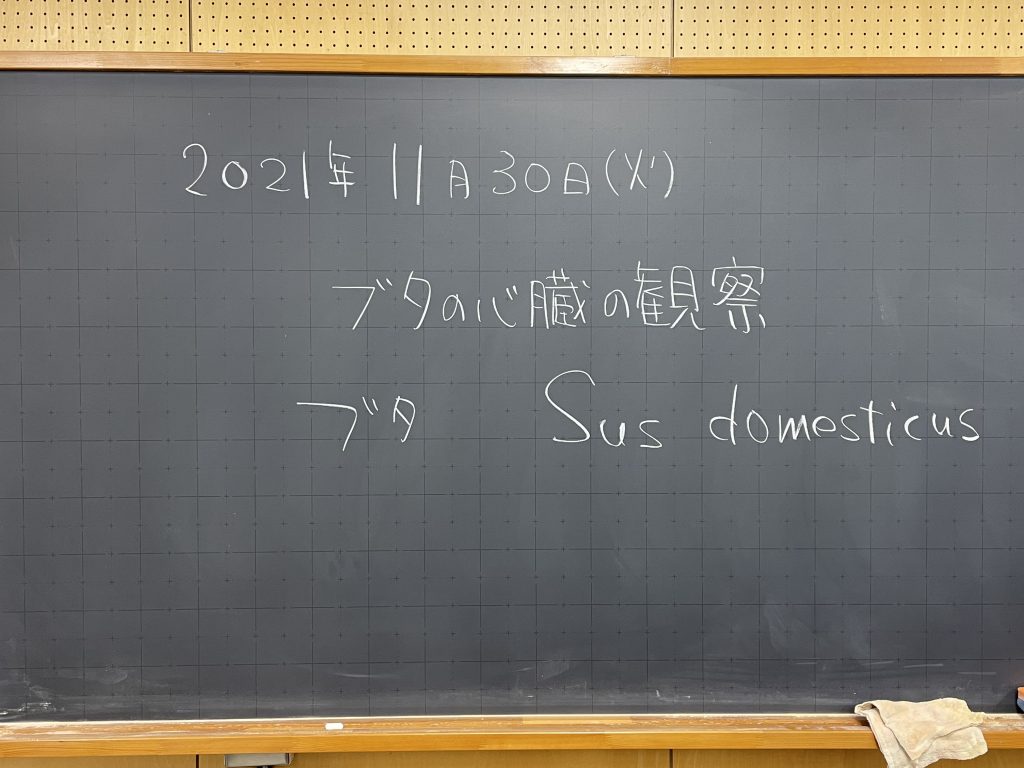 2021年11月30日(火)
ブタの心臓の観察
ブタ Sus domesticus